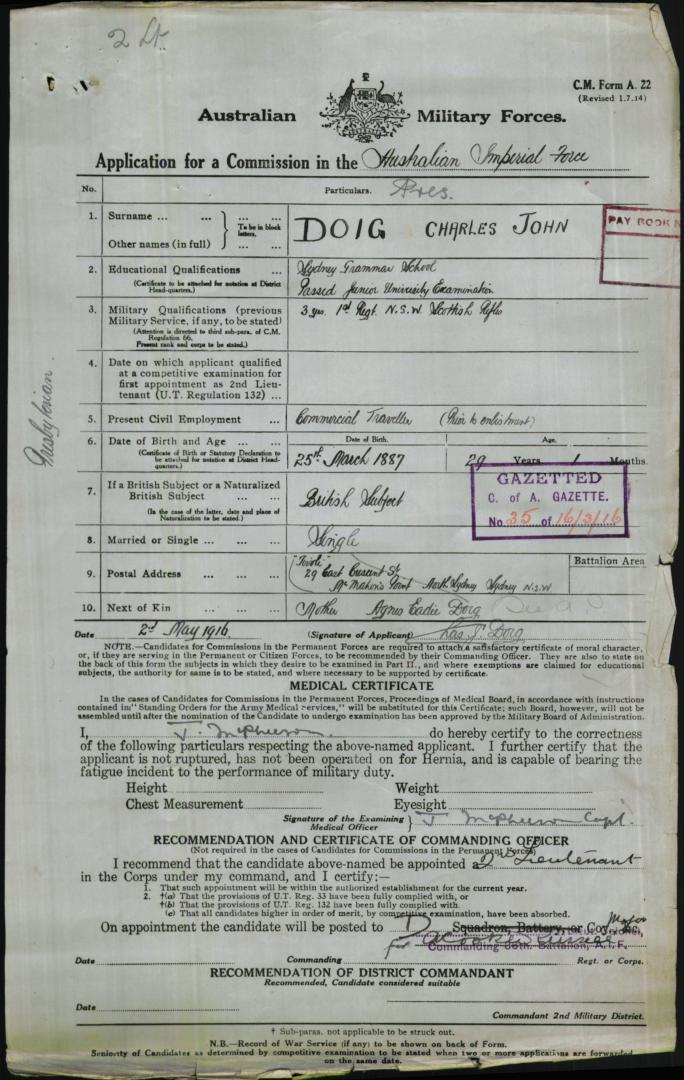 2 Lt.
C.M. Form A. 22
(Revised 1.7.14)
Australian Military Forces.
Application for a Commission in the Australian Imperial Force
No. Particulars. Pres.
1. Surname ... ... ... ...
Other names (in full) ... ...
To be in block letters.
DOIG CHARLES JOHN
PAY BOOK N
2. Educational Qualifications ...
(Certificate to be attached for notation at District Head-quarters.)
Sydney Grammar School
Passed Junior University Examination
3. Military Qualifications (previous Military Service, if any, to be stated)
(Attention is directed to third sub-para. of C.M. Regulation 66. Present rank and corps to be stated.)
3 yrs. 1st Regt. N.S.W Scottish Rifles
4. Date on which applicant qualified at a competitive examination for first appointment as 2nd Lieu-tenant (U.T. Regulation 132) ...
Presbyterian.
5. Present Civil Employment ...
Commercial Traveller (Prior to enlistment)
6. Date of Birth and Age ... ...
(Certificate of Birth or Statutory Declaration to be attached for notation at District Head-quarters.)
Date of Birth. Age.
25th March 1887 29 Years 1 Months.
7. If a British Subject or a Naturalized British Subject ... ...
(In the case of the latter, date and place of Naturalization to be stated.)
British Subject
GAZETTED
C. of A. GAZETTE.
No. 35 of 16/3/16
8. Married or Single ... ... ...
Single
9. Postal Address ... ... ...
"Tivoli"
29 East Crescent St
McMahon's Point North Sydney Sydney N.S.W
Battalion Area
10. Next of Kin ... ... ...
Mother Agnes Eadie Doig
Date 2nd May 1916 (Signature of Applicant) Chas J. Doig
NOTE.—Candidates for Commissions in the Permanent Forces are required to attach a satisfactory certificate of moral character,
or, if they are serving in the Permanent or Citizen Forces, to be recommended by their Commanding Officer. They are also to state on
the back of this form the subjects in which they desire to be examined in Part II., and where exemptions are claimed for educational
subjects, the authority for same is to be stated, and where necessary to be supported by certificate.
MEDICAL CERTIFICATE
In the cases of Candidates for Commissions in the Permanent Forces, Proceedings of Medical Board, in accordance with instructions
contained in "Standing Orders for the Army Medical Services," will be substituted for this Certificate; such Board, however, will not be
assembled until after the nomination of the Candidate to undergo examination has been approved by the Military Board of Administration.
I, J. McPherson. do hereby certify to the correctness
of the following particulars respecting the above-named applicant. I further certify that the
applicant is not ruptured, has not been operated on for Hernia, and is capable of bearing the
fatigue incident to the performance of military duty.
Height Weight
Chest Measurement Eyesight
Signature of the Examining Medical Officer } J McPherson Capt.
RECOMMENDATION AND CERTIFICATE OF COMMANDING OFFICER
(Not required in the cases of Candidates for Commissions in the Permanent Forces)
I recommend that the candidate above-named be appointed a 2nd Lieutenant
in the Corps under my command, and I certify:—
1. That such appointment will be within the authorized establishment for the current year.
2. †(a) That the provisions of U.T. Reg. 33 have been fully complied with, or
†(b) That the provisions of U.T. Reg. 132 have been fully complied with.
(c) That all candidates higher in order of merit, by competitive examination, have been absorbed.
On appointment the candidate will be posted to D Squadron, Battery, or Coy., &c.
Major
for
Commanding Battalion, A.I.F.
Date Commanding Regt. or Corps.
RECOMMENDATION OF DISTRICT COMMANDANT
Recommended, Candidate considered suitable
Date
Commandant 2nd Military District.
† Sub-paras. not applicable to be struck out.
N.B.—Record of War Service (if any) to be shown on back of Form.
Seniority of Candidates as determined by competitive examination to be stated when two or more applications are forwarded
on the same date.